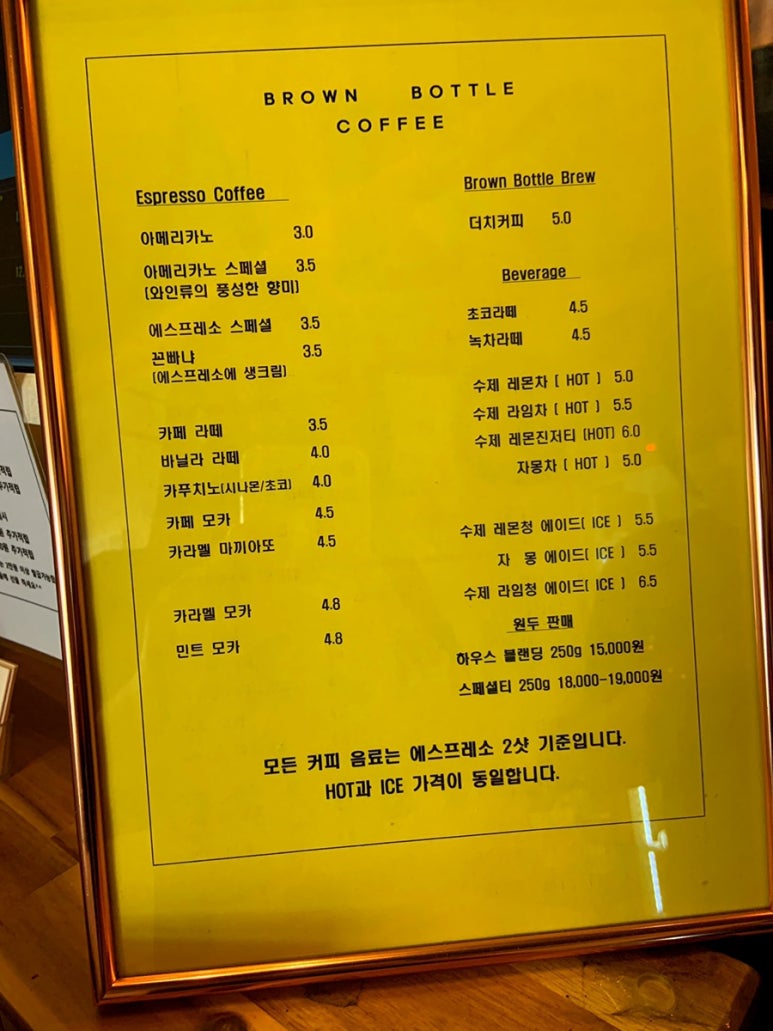 BROWN BOTTLE
COFFEE
Espresso Coffee
아메리카노 3.0
아메리카노 스페셜 3.5
(와인류의 풍성한 향미)
에스프레소 스페셜 3.5
꼰빠냐 3.5
(에스프레소에 생크림)
카페 라떼 3.5
바닐라 라떼 4.0
카푸치노(시나몬/초코) 4.0
카페 모카 4.5
카라멜 마끼아또 4.5
카라멜 모카 4.8
민트 모카 4.8
Brown Bottle Brew
더치커피 5.0
Beverage
초코라떼 4.5
녹차라떼 4.5
수제 레몬차 ( HOT ) 5.0
수제 라임차 ( HOT ) 5.5
수제 레몬진저티 (HOT) 6.0
자몽차 ( HOT ) 5.0
수제 레몬청 에이드( ICE ) 5.5
자 몽 에이드( ICE ) 5.5
수제 라임청 에이드( ICE ) 6.5
원두 판매
하우스 블랜딩 250g 15,000원
스페셜티 250g 18,000-19,000원
모든 커피 음료는 에스프레소 2샷 기준입니다.
HOT과 ICE 가격이 동일합니다.